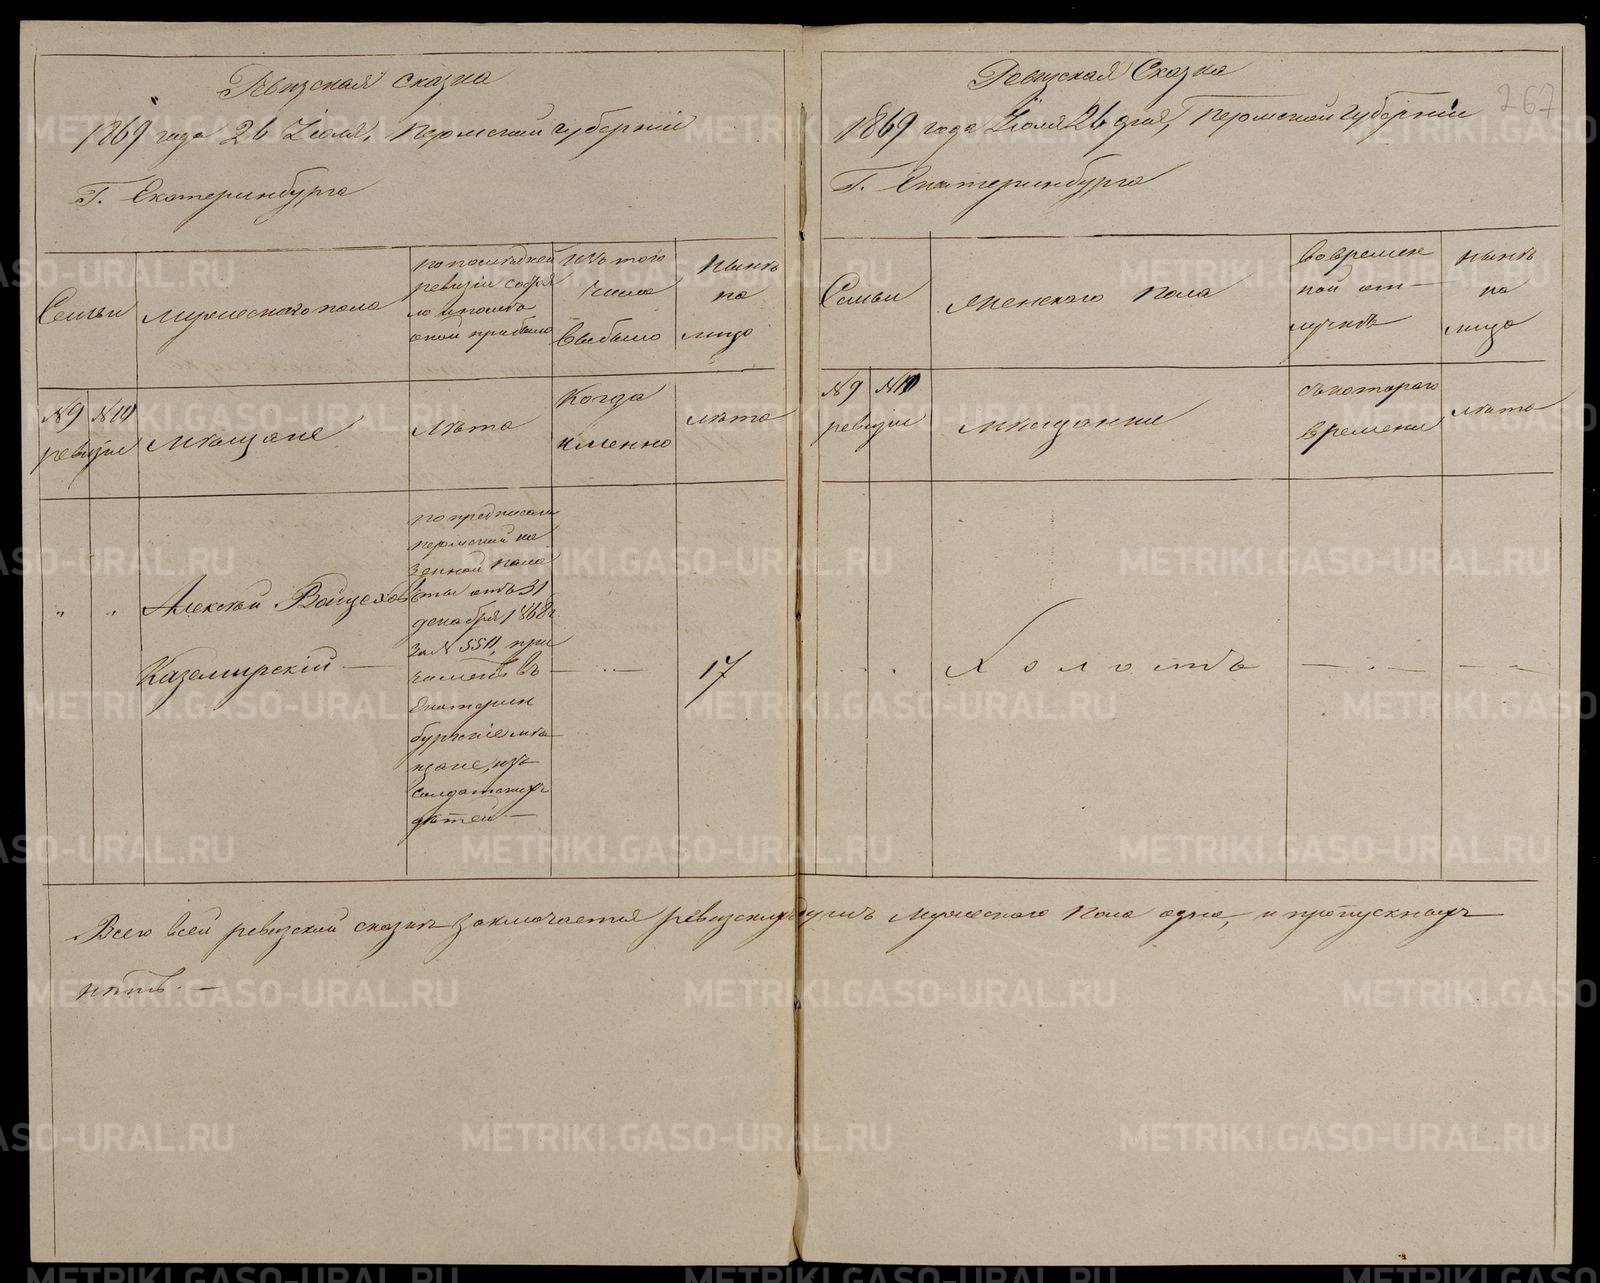 Ревизская сказка
1869 года 26 Іюля, Пермской губерніи
Г. Екатеринбурга
Семьи
Мужескаго пола
по последней
ревизіи состоя
ло и после
оной прибыло
Изъ того
числа
выбыло
Ныне
на
лицо
№ 9 № 10
ревизіи
Мѣщане
Лѣта
Когда
именно
лѣта
" "
Алексѣй Войцехов
Каземирскій —
по предписан
Пермской ка
зенной пала
ты отъ 31
декабря 1868 г.
за № 5511, при
численъ въ
Екатерин
бургскіе мѣ
щане, изъ
солдатскихъ
дѣтей —
17
Ревизская Сказка
267
1869 года Іюля 26 дня, Пермской губерніи
Г. Екатеринбурга
Семьи
Женскаго пола
Во времен
ной от-
лучкѣ
Нынѣ
на
лицо
№ 9 № 10
ревизіи
Мѣщанки
Съ котораго
времени
лѣта
Холостъ
Всего въ сей ревизской сказкѣ заключается ревизскихъ душъ мужескаго пола одна, и пропускныхъ
нѣтъ. —
METRIKI.GASO-URAL.RU